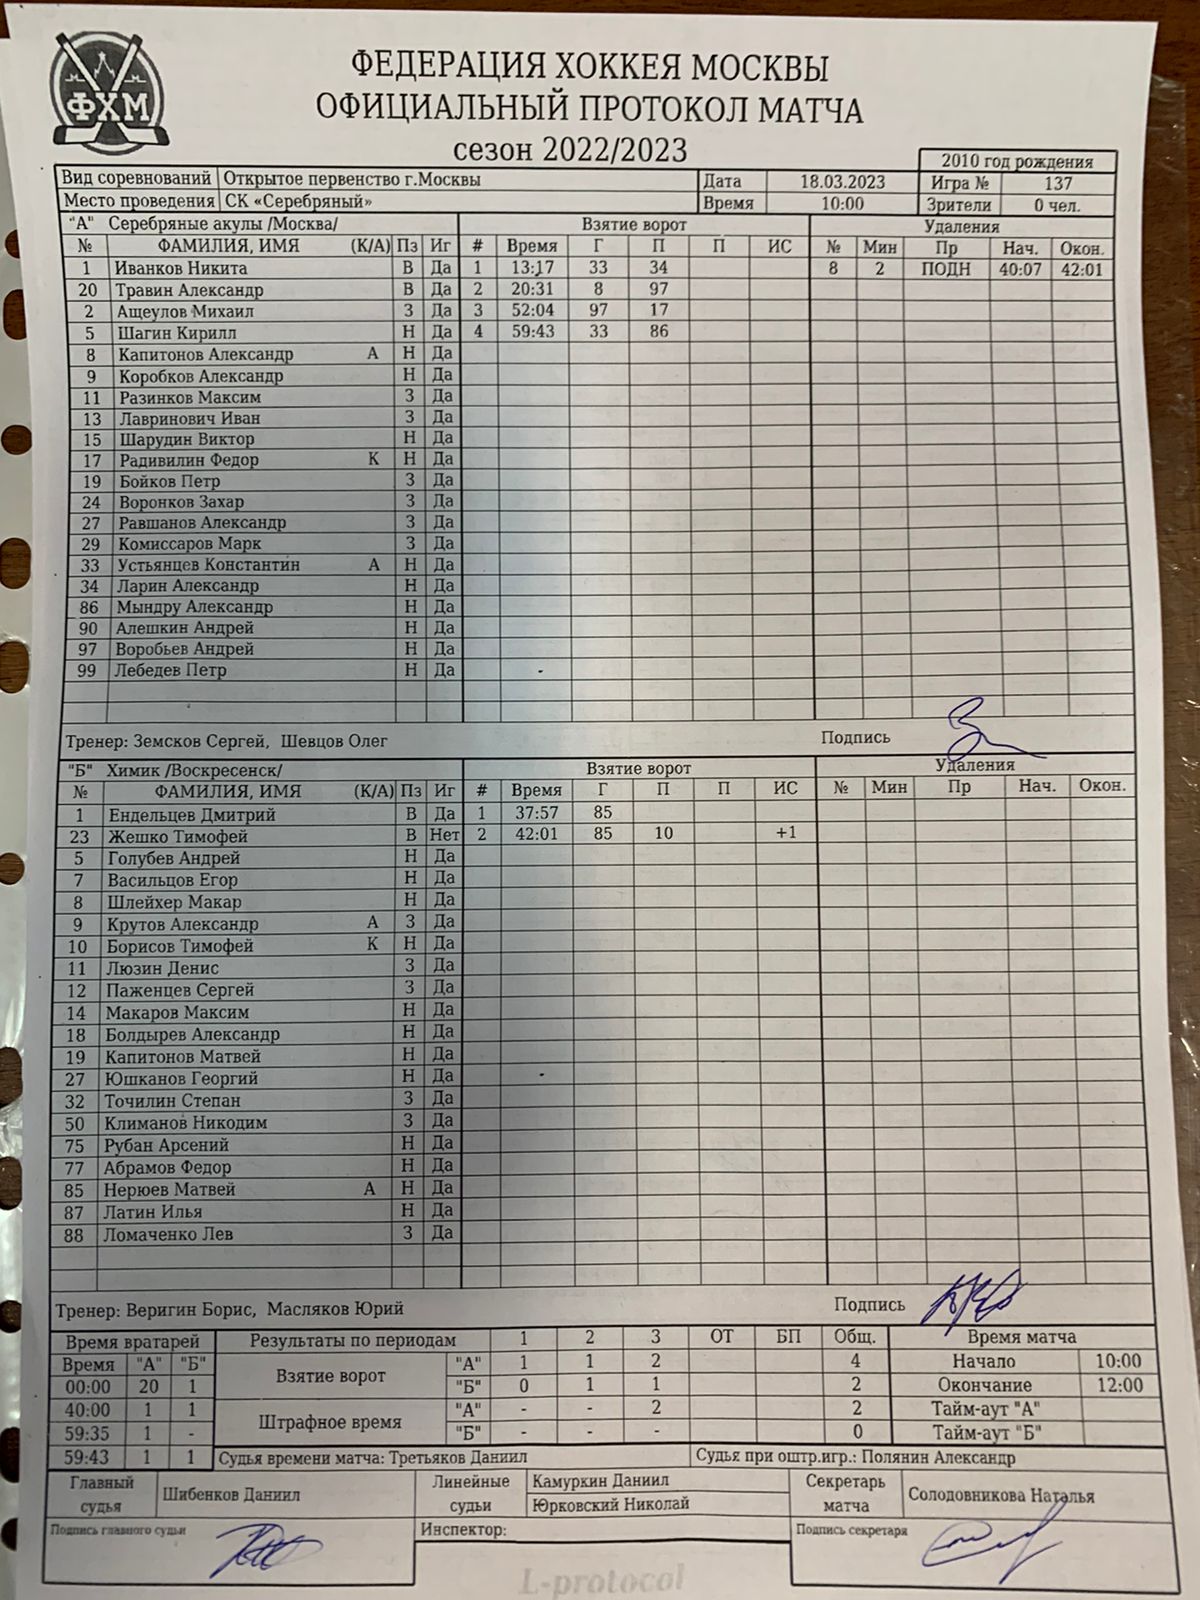 ФХМ
ФЕДЕРАЦИЯ ХОККЕЯ МОСКВЫ
ОФИЦИАЛЬНЫЙ ПРОТОКОЛ МАТЧА
сезон 2022/2023
2010 год рождения
Вид соревнований Открытое первенство г.Москвы Дата 18.03.2023 Игра № 137
Место проведения СК «Серебряный» Время 10:00 Зрители 0 чел.
"А" Серебряные акулы /Москва/ Взятие ворот Удаления
№ ФАМИЛИЯ, ИМЯ (К/А) Пз Иг # Время Г П П ИС № Мин Пр Нач. Окон.
1 Иванков Никита В Да 1 13:17 33 34 8 2 ПОДН 40:07 42:01
20 Травин Александр В Да 2 20:31 8 97
2 Ащеулов Михаил З Да 3 52:04 97 17
5 Шагин Кирилл Н Да 4 59:43 33 86
8 Капитонов Александр А Н Да
9 Коробков Александр Н Да
11 Разинков Максим З Да
13 Лавринович Иван З Да
15 Шарудин Виктор Н Да
17 Радивилин Федор К Н Да
19 Бойков Петр З Да
24 Воронков Захар З Да
27 Равшанов Александр З Да
29 Комиссаров Марк З Да
33 Устьянцев Константин А Н Да
34 Ларин Александр Н Да
86 Мындру Александр Н Да
90 Алешкин Андрей Н Да
97 Воробьев Андрей Н Да
99 Лебедев Петр Н Да
Тренер: Земсков Сергей, Шевцов Олег Подпись
"Б" Химик /Воскресенск/ Взятие ворот Удаления
№ ФАМИЛИЯ, ИМЯ (К/А) Пз Иг # Время Г П П ИС № Мин Пр Нач. Окон.
1 Ендельцев Дмитрий В Да 1 37:57 85
23 Жешко Тимофей В Нет 2 42:01 85 10 +1
5 Голубев Андрей Н Да
7 Васильцов Егор Н Да
8 Шлейхер Макар Н Да
9 Крутов Александр А З Да
10 Борисов Тимофей К Н Да
11 Люзин Денис З Да
12 Паженцев Сергей З Да
14 Макаров Максим Н Да
18 Болдырев Александр Н Да
19 Капитонов Матвей Н Да
27 Юшканов Георгий Н Да
32 Точилин Степан З Да
50 Климанов Никодим З Да
75 Рубан Арсений Н Да
77 Абрамов Федор Н Да
85 Нерюев Матвей А Н Да
87 Латин Илья Н Да
88 Ломаченко Лев З Да
Тренер: Веригин Борис, Масляков Юрий Подпись
Время вратарей Результаты по периодам 1 2 3 ОТ БП Общ. Время матча
Время "А" "Б" Взятие ворот "А" 1 1 2 4 Начало 10:00
00:00 20 1 "Б" 0 1 1 2 Окончание 12:00
40:00 1 1 Штрафное время "А" - - 2 2 Тайм-аут "А"
59:35 1 - "Б" - - - 0 Тайм-аут "Б"
59:43 1 1 Судья времени матча: Третьяков Даниил Судья при оштр.игр.: Полянин Александр
Главный судья Шибенков Даниил Линейные судьи Камуркин Даниил Секретарь матча Солодовникова Наталья
Юрковский Николай
Подпись главного судьи Инспектор: Подпись секретаря
L-protocol